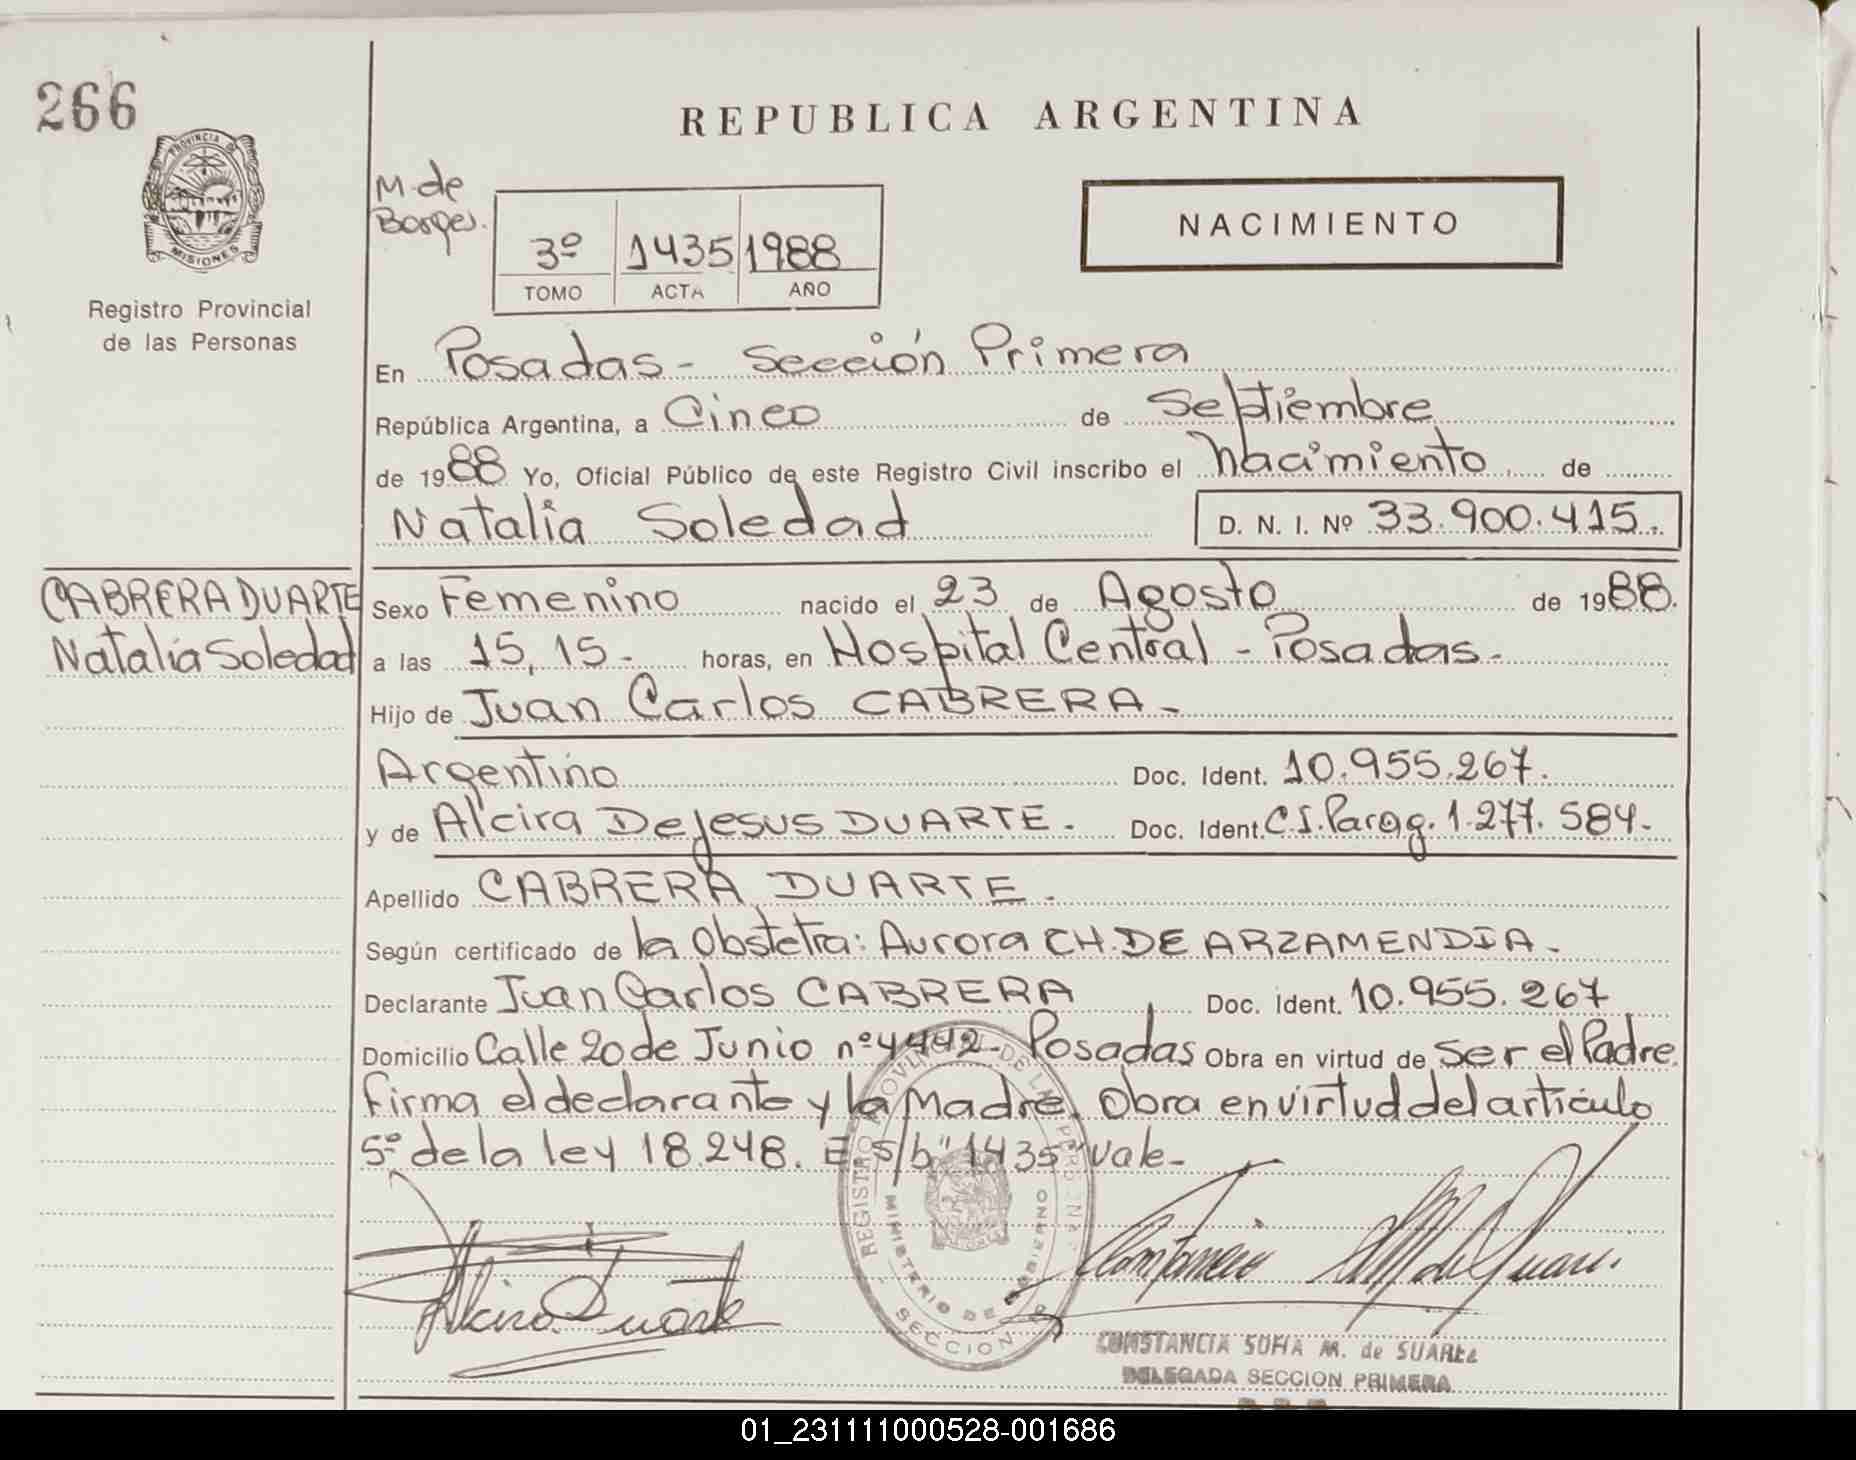 266
PROVINCIA DE
MISIONES
Registro Provincial
de las Personas
REPUBLICA ARGENTINA
M. de
Borges.
3º 1435 1988
TOMO ACTA AÑO
NACIMIENTO
En Posadas - Sección Primera
República Argentina, a Cinco de Septiembre
de 1988 Yo, Oficial Público de este Registro Civil inscribo el Nacimiento de
Natalia Soledad D. N. I. Nº 33.900.415.
CABRERA DUARTE
Natalia Soledad
Sexo Femenino nacido el 23 de Agosto de 1988.
a las 15,15- horas, en Hospital Central - Posadas-
Hijo de Juan Carlos CABRERA-
Argentino Doc. Ident. 10.955.267.
y de Alcira De Jesus DUARTE. Doc. Ident. C.I. Parag. 1.277.584-
Apellido CABRERA DUARTE.
Según certificado de la Obstetra: Aurora CH. DE ARZAMENDIA-
Declarante Juan Carlos CABRERA Doc. Ident. 10.955.267
Domicilio Calle 20 de Junio nº 4442- Posadas Obra en virtud de ser el Padre.
Firma el declarante y la Madre. Obra en virtud del articulo
5º de la ley 18.248. E s/b "1435" vale-
Alcira Duarte
REGISTRO PROVINCIAL DE LAS PERSONAS
MINISTERIO DE GOBIERNO
SECCION
CONSTANCIA SOFIA M. de SUAREZ
DELEGADA SECCION PRIMERA
01_231111000528-001686